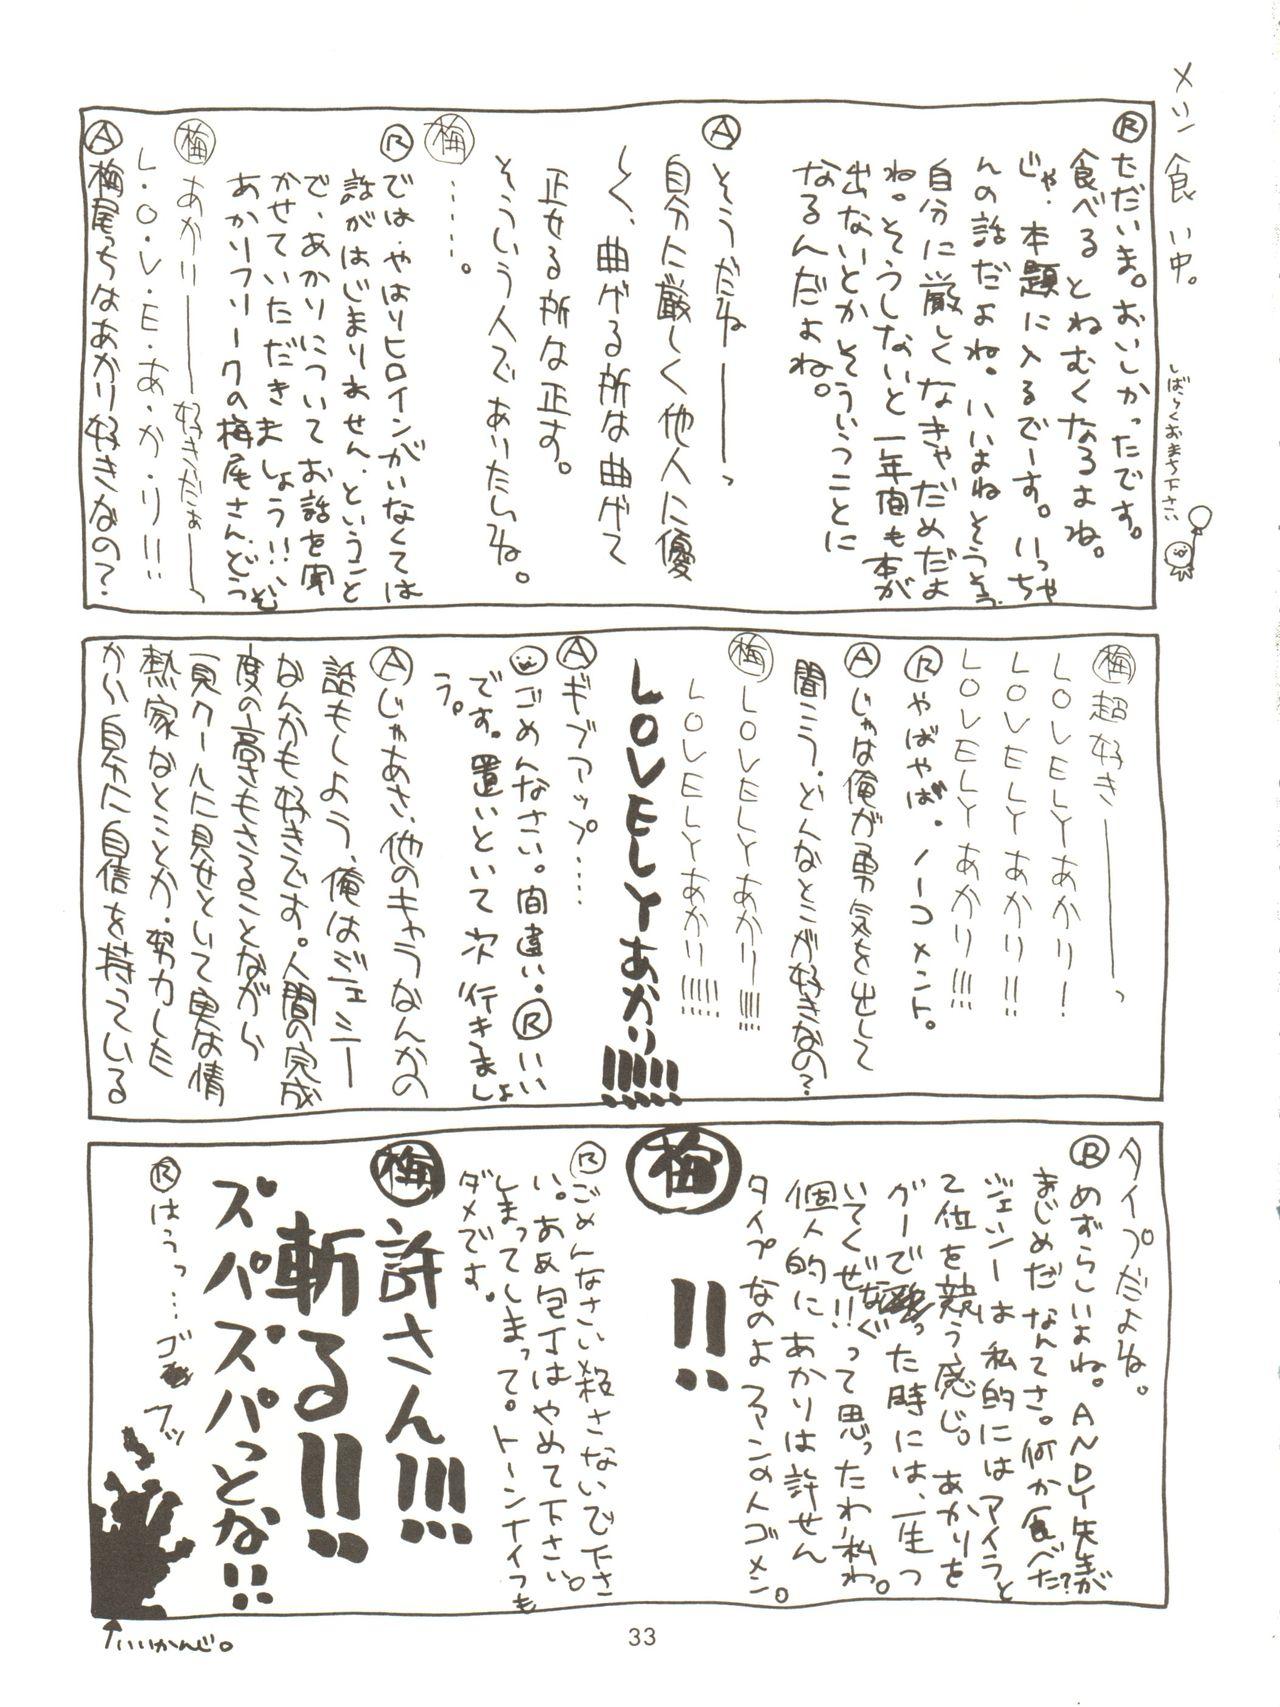 メシ食い中。
しばらくおまち下さい
Ⓡただいま。おいしかったです。
食べるとねむくなるよね。
じゃ、本題に入るでーす。いっちゃ
んの話だよね。いいよねそうそう
自分に厳しくなきゃだめだよ
ね。そうしないと一年間も本が
出ないとかそういうことに
なるんだよね。
Ⓐそうだねーーーっ
自分に厳しく他人に優
しく、曲げる所は曲げて
正せる所は正す。
そういう人でありたいね。
㊙梅……。
Ⓡでは、やはりヒロインがいなくては
話がはじまりません。ということ
で、あかりについてお話を聞
かせていただきましょう!!、
あかりフリークの梅尾さんどうぞ
梅あかりーーー好きだぁーっ
L・O・V・E・あ・か・り!!
Ⓐ梅尾っちはあかり好きなの?
梅超好きーーーーっ
LOVELYあかり!
LOVELYあかり!!
LOVELYあかり!!!
Ⓡやばやば、ノーコメント。
Ⓐじゃは俺が勇気を出して
聞こう。どんなとこが好きなの?
梅LOVELYあかり!!!!
LOVELYあかり!!!!!
LOVELYあかり!!!!!!
Ⓐギブアップ……
ごめんなさい。間違い。Ⓡいい
です。置いといて次行きましょ
う。
Ⓐじゃあさ、他のキャラなんかの
話もしよう、俺はジェシー
なんかも好きです。人間の完成
度の高さもさることながら
一見クールに見せといて実は情
熱家なとことか、努力した
から自分に自信を持っている
タイプだよね。
Ⓡめずらしいよね。ANDY先生が
まじめだなんてさ。何か食べた?
ジェシーは私的にはアイラと
2位を競う感じ。あかりを
ガーでなぐった時には、一生つ
いてくぜ!!って思ったわ私わ。
個人的にあかりは許せん
タイプなのよファンの人ゴメン。
梅!!
Ⓡごめんなさい殺さないで下さ
い。あぁ包丁はやめて下さい。
しまってしまって。トーンナイフも
ダメです。
梅許さん!!!
斬る!!
ズパズパっとな!!
Ⓡはうっ…ゴフッ
↑いいかんじ。
33